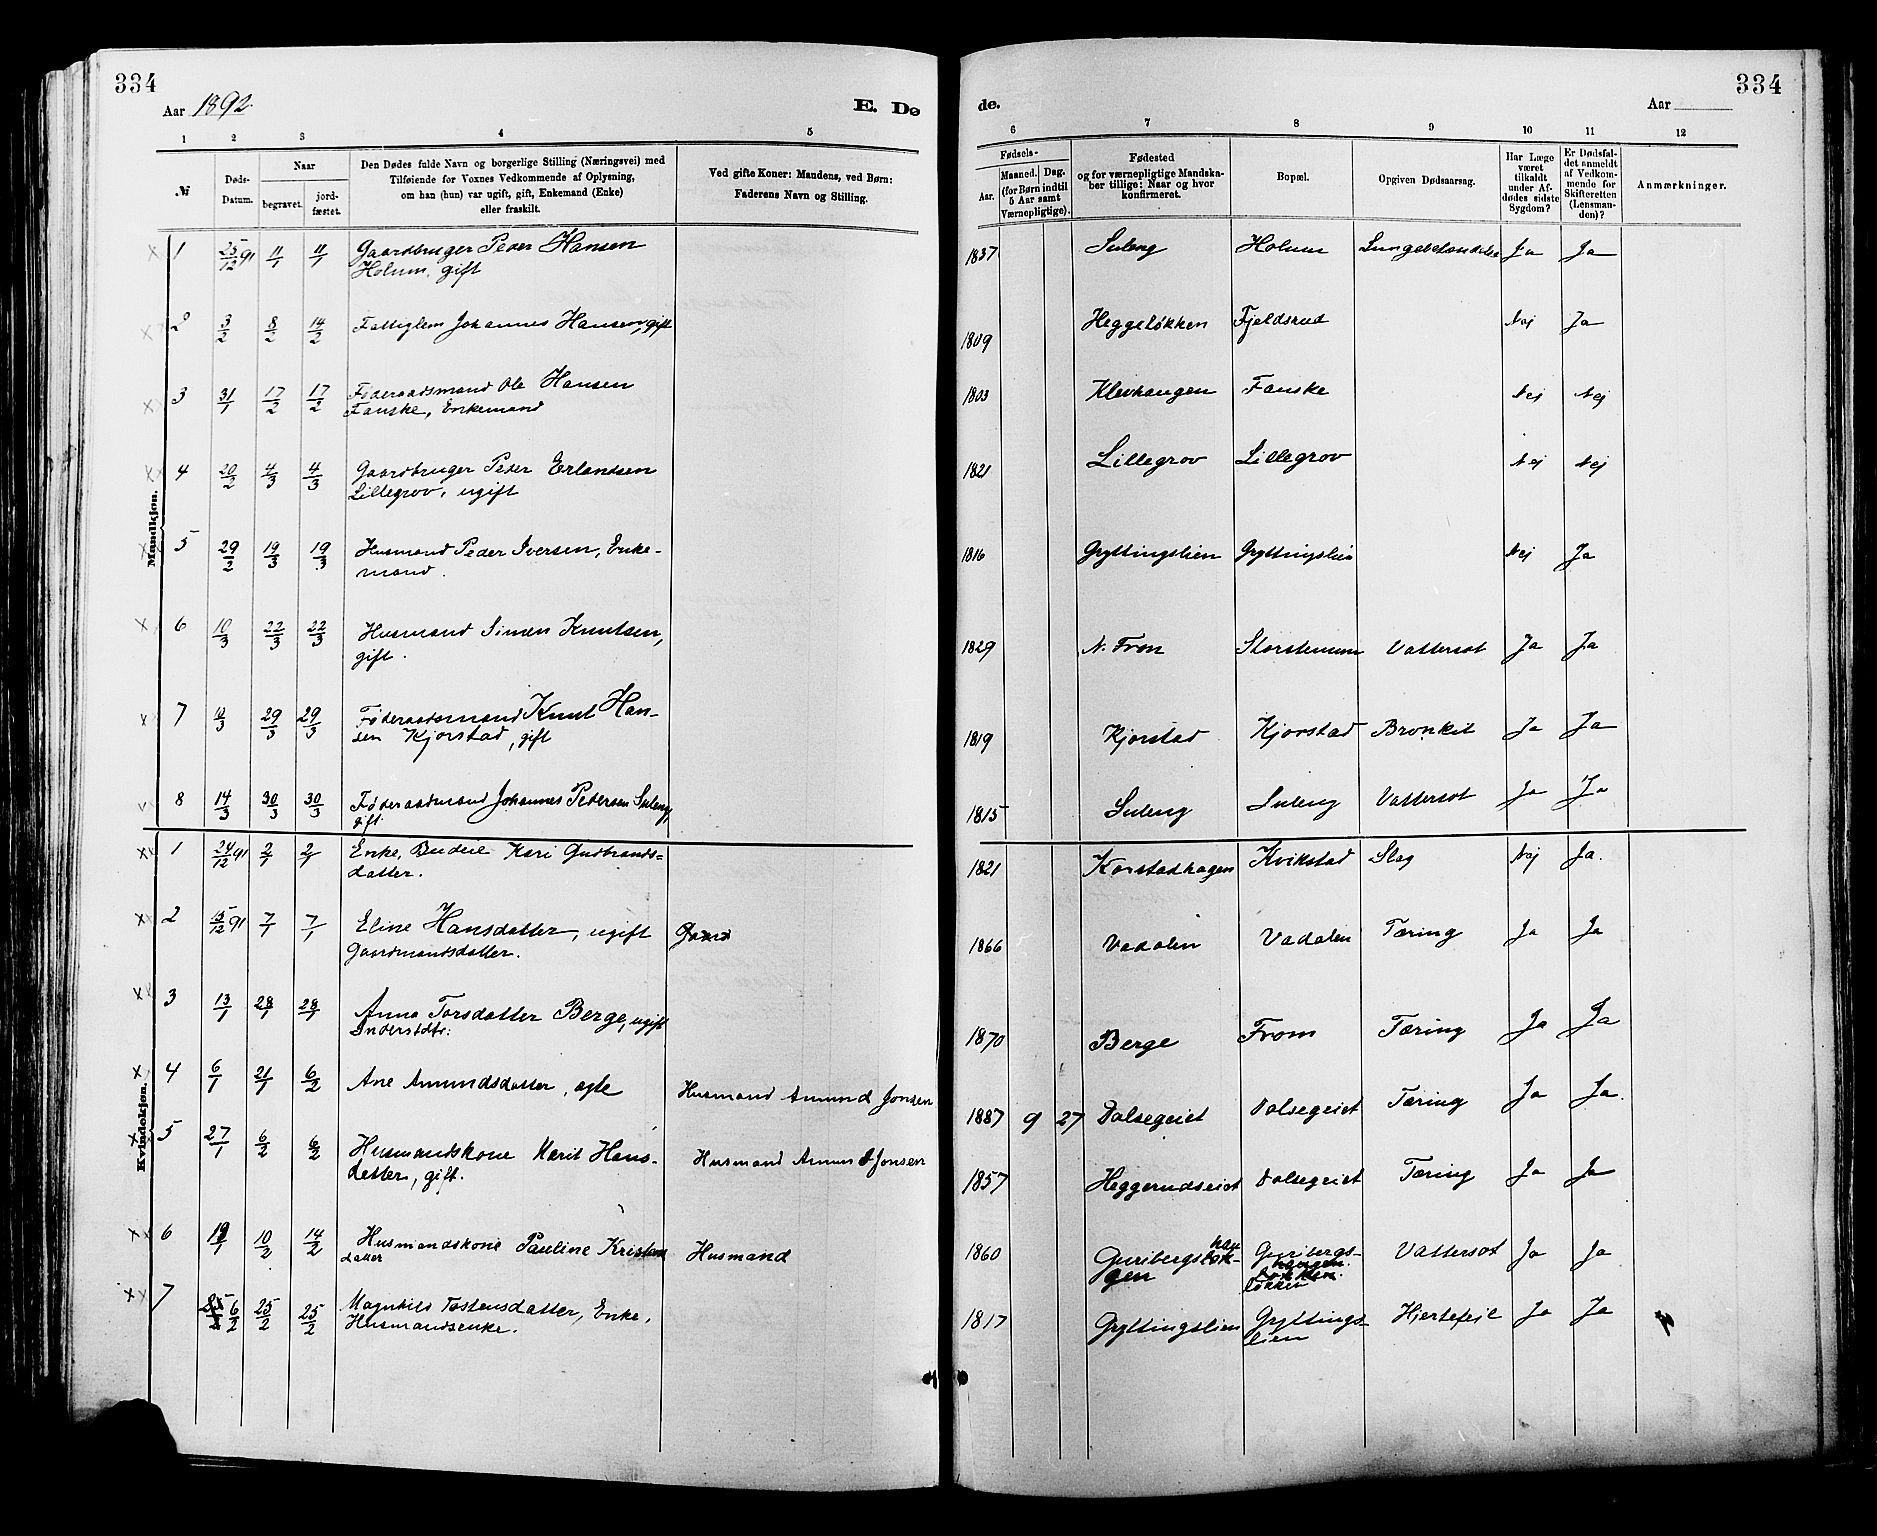 334
Aar 1892.
E. Dø
1 2 3 4 5
№
Døds-Datum.
Naar
begravet.
jord-fæstet.
Den Dødes fulde Navn og borgerlige Stilling (Næringsvei) med
Tilføiende for Voxnes Vedkommende af Oplysning,
om han (hun) var ugift, gift, Enkemand (Enke)
eller fraskilt.
Ved gifte Koner: Mandens, ved Børn:
Faderens Navn og Stilling.
Mandkjøn.
1 25/12 91 11/1 11/1 Gaardbruger Peder Hansen
Holum, gift
2 3/2 8/2 14/2 Fattiglem Johannes Hansen, gift
3 31/1 17/2 17/2 Føderaadsmand Ole Hansen
Fauske, Enkemand
4 20/2 4/3 4/3 Gaardbruger Peder Erlandsen
Lillegrov, ugift
5 29/2 19/3 19/3 Husmand Peder Iversen, Enke-
mand.
6 10/3 22/3 22/3 Husmand Simen Knutsen,
gift.
7 12/3 29/3 29/3 Føderaadsmand Knut Han-
sen Kjorstad, gift
8 14/3 30/3 30/3 Føderaadmand Johannes Pedersen Suleng
gift.
Kvindekjøn.
1 24/12 91 2/1 2/1 Enke, Budeie Kari Gudbrands-
datter.
2 15/12 91 7/1 7/1 Eline Hansdatter, ugift
Gaardmandsdatter.
3 13/1 28/1 28/1 Anna Torsdatter Berge, ugift
Inderstdtr:
4 6/1 21/1 6/2 Ane Amundsdatter, ægte Husmand Amund Jonsen
5 27/1 6/2 6/2 Husmandskone Marit Hans-
datter, gift. Husmand Amund Jonsen
6 19/1 10/2 14/2 Husmandskone Pauline Kristians
datter Husmand
7 6/2 25/2 25/2 Magnhild Tostensdatter, Enke,
Husmandsenke.
de.
Aar
334
6 7 8 9 10 11 12
Fødsels-
Aar.
Maaned. Dag.
(for Børn indtil
5 Aar samt
Værnepligtige).
Fødested
og for værnepligtige Mandska-
ber tillige: Naar og hvor
konfirmeret.
Bopæl.
Opgiven Dødsaarsag.
Har Læge
været
tilkaldt
under Af-
dødes sidste
Sygdom?
Er Dødsfal-
det anmeldt
af Vedkom-
mende for
Skifteretten
(Lensman-
den)?
Anmærkninger.
1837 Suleng Holum Lungebetændelse Ja Ja
1809 Heggeløkken Fjeldsrud Nej Ja
1803 Klevhaugen Fauske Nej Nej
1821 Lillegrov Lillegrov Nej Nej
1816 Gryttingslien Gryttingslien Nej Ja
1829 N. Fron Storstemmen Vattersot Ja Ja
1819 Kjorstad Kjorstad Bronkit Ja Ja
1815 Suleng Suleng Vattersot Ja Ja
1821 Korstadhagen Kvikstad Slag Nej Ja.
1866 Vadalen Vadalen Tæring Ja Ja
1870 Berge From Tæring Ja Ja
1887 9 27 Dalsegeiet Dalsegeiet Tæring Ja Ja.
1857 Heggerudseiet Dalsegeiet Tæring Ja Ja
1860 Guribergs
gen Guribergs-
løkken Vattersot Ja Ja
1817 Gryttingslien Gryttings-
lien Hjertefeil Ja Ja